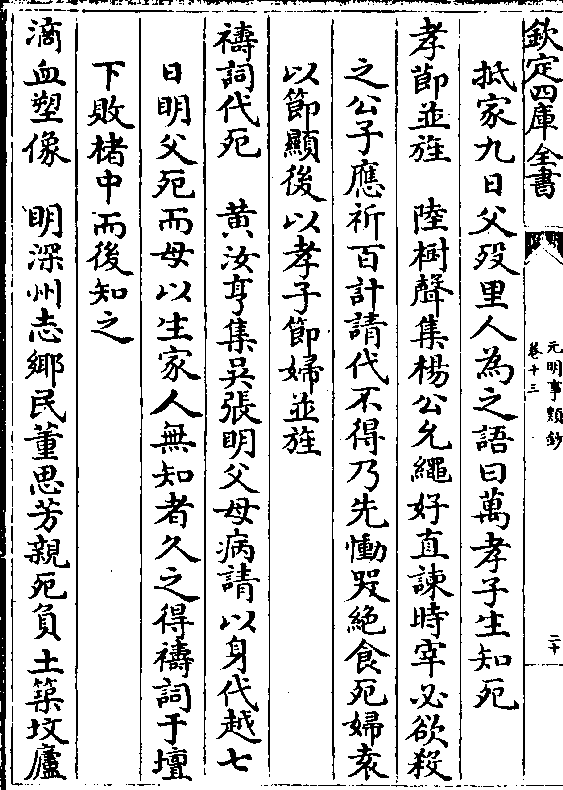 欽定四庫全書
元明事類鈔
卷十三
二十
抵家九日父歿里人為之語曰萬孝子生知死
孝節並旌　陸樹聲集楊公允繩好直諫時宰必欲殺
之公子應祈百計請代不得乃先慟哭絕食死婦袁
以節顯後以孝子節婦並旌
禱詞代死　黃汝亨集吳張明父母病請以身代越七
日明父死而母以生家人無知者久之得禱詞于壇
下敗楮中而後知之
滴血塑像　明深州志鄉民董思芳親死負土築墳廬